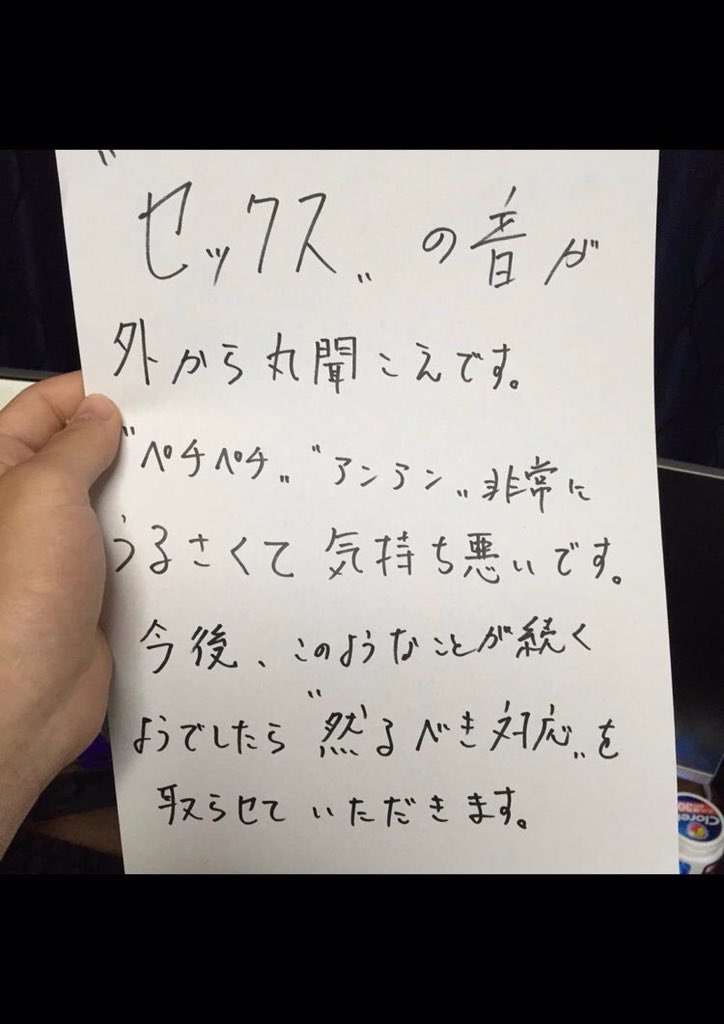 "セックス"の音が
外から丸聞こえです。
"ペチペチ" "アンアン"非常に
うるさくて気持ち悪いです。
今後、このようなことが続く
ようでしたら"然るべき対応"を
取らせていただきます。
Cloret